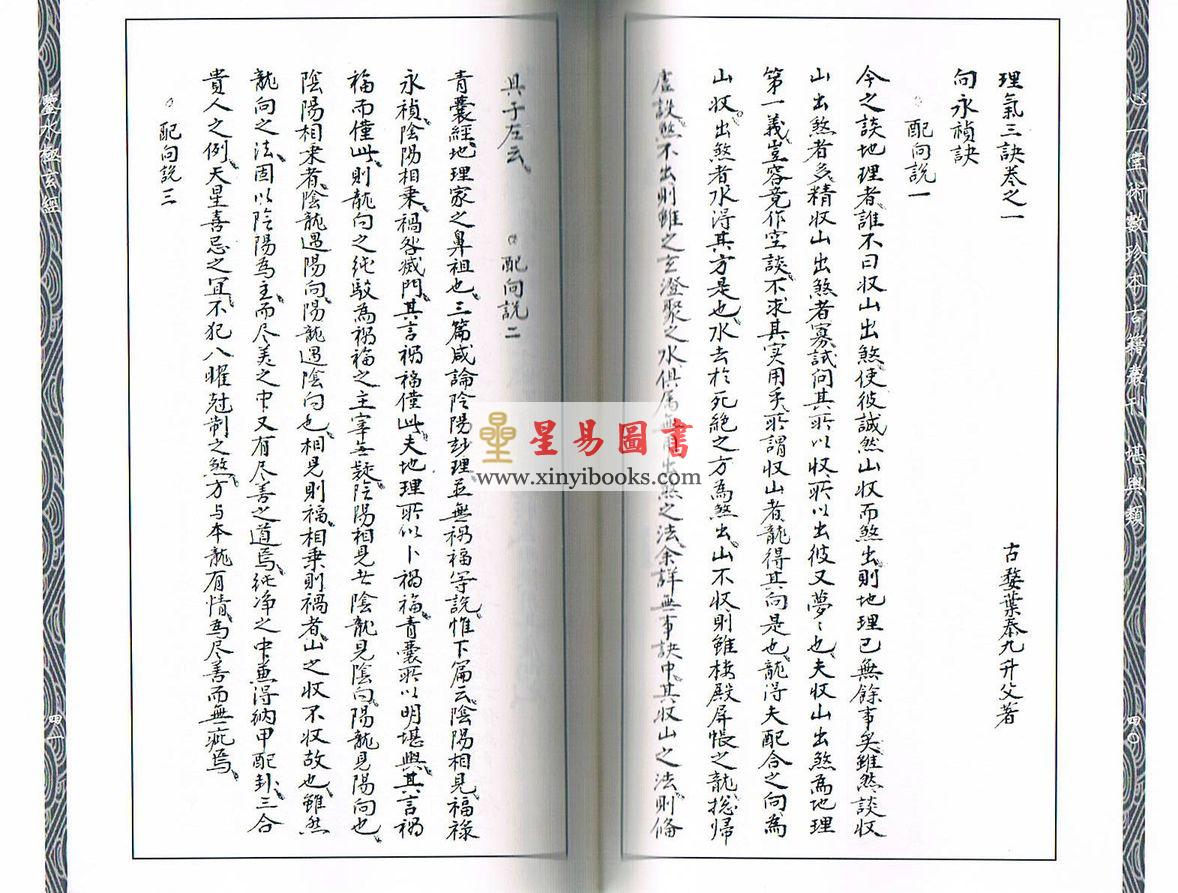 心一堂術數珍本古籍叢刊 堪輿類
四〇
理氣三訣卷之一
古婺葉泰九升父著
向永禎訣
配向說一
今之談地理者誰不曰収山出煞使彼誠然山収而煞出則地理已無餘事矣雖然談収
山出煞者多精収山出煞者寡試問其所以収所以出彼又夢〻也夫収山出煞為地理
第一義豈容竟作空談不求其實用乎所謂収山者龍得其向是也龍得夫配合之向為
山収出煞者水得其方是也水去於死絕之方為煞出山不収則雖樓殿屏帳之龍捴歸
虛設煞不出則雖之玄澄聚之水俱屬無 出煞之法余詳無事訣中其収山之法則條
具于左云
配向說二
青囊經地理家之鼻祖也三篇咸論陰陽玅理並無禍福等說惟下篇云陰陽相見福祿
永禎陰陽相乗禍咎滅門其言禍福僅此夫地理所以卜禍福青囊所以明堪輿其言禍
福而僅此則龍向之純駁為禍福之主宰無疑陰陽相見者陰龍見陰向陽龍見陽向也
陰陽相乗者陰龍遇陽向陽龍遇陰向也相見則福相乗則禍者山之収不収故也雖然
龍向之法固以陰陽為主而尽美之中又有尽善之道焉純净之中兼得納甲配卦三合
貴人之例天星喜忌之宜不犯八曜尅制之煞方与本龍有情為尽善而無疵焉
配向說三
四一
星易圖書
www.xinyibooks.com